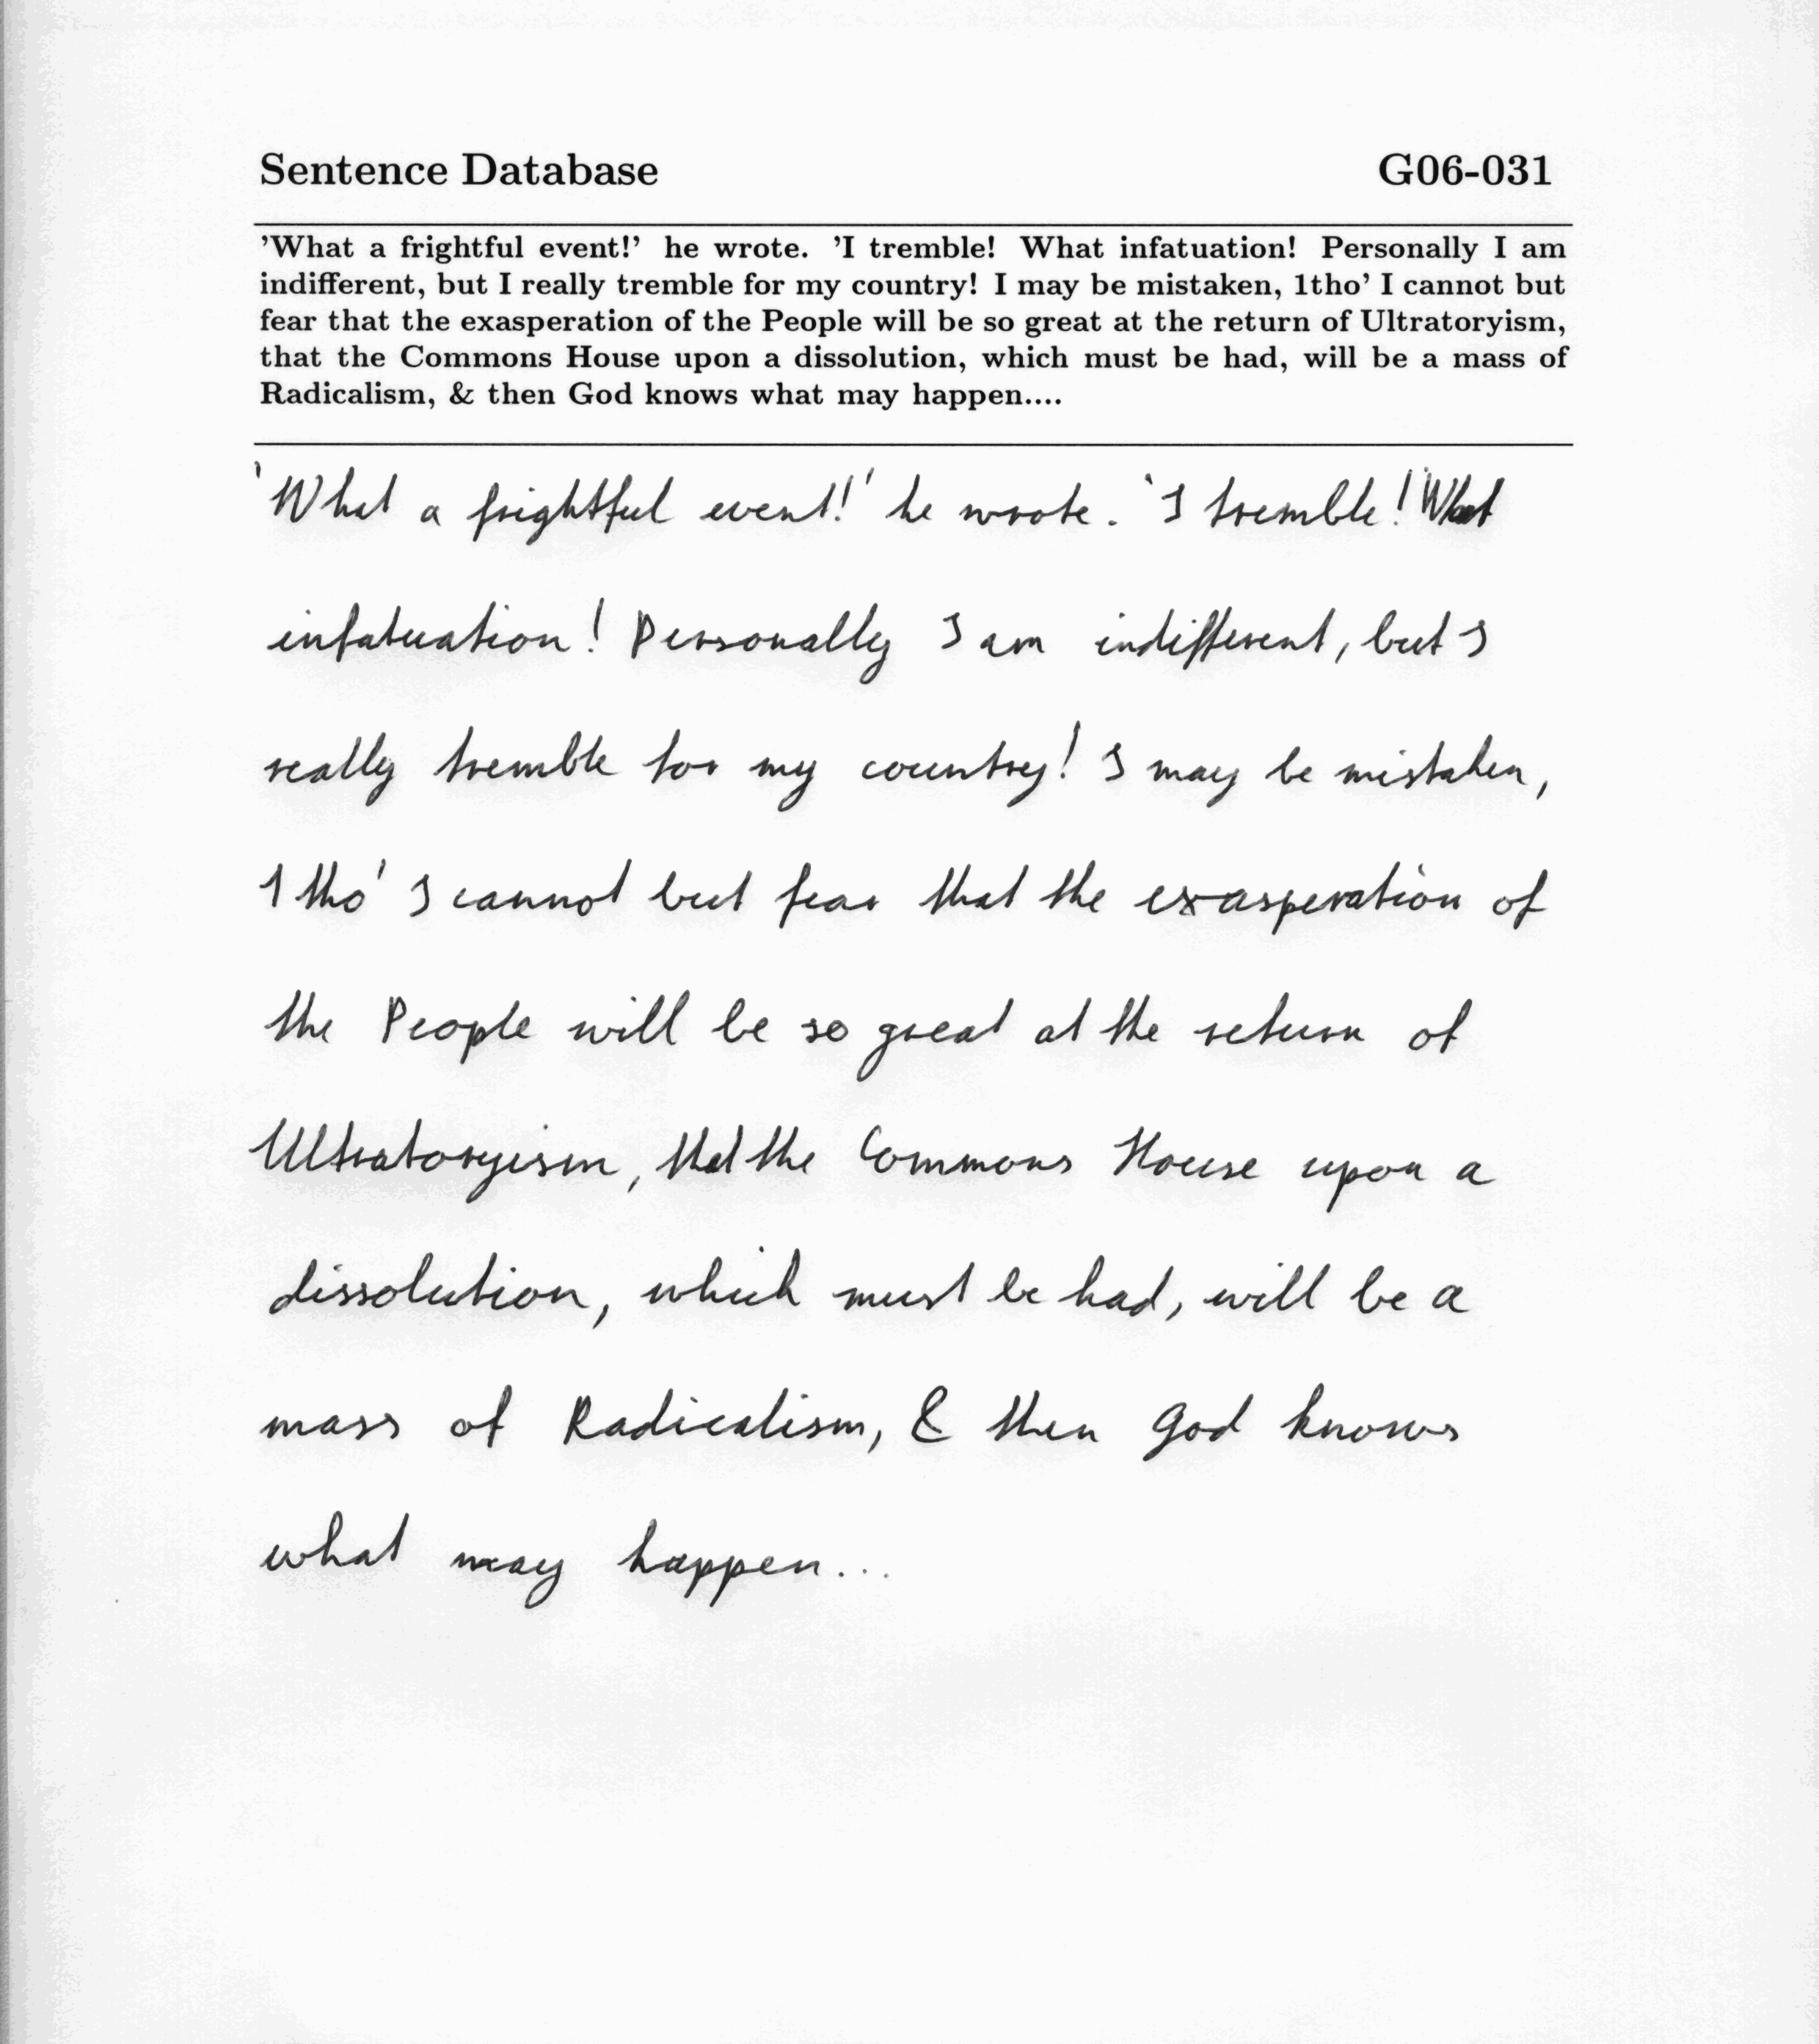 Sentence Database G06-031
'What a frightful event!' he wrote. 'I tremble! What infatuation! Personally I am
indifferent, but I really tremble for my country! I may be mistaken, 1tho' I cannot but
fear that the exasperation of the People will be so great at the return of Ultratoryism,
that the Commons House upon a dissolution, which must be had, will be a mass of
Radicalism, & then God knows what may happen....
'What a frightful event!' he wrote. 'I tremble! What
infatuation! Personally I am indifferent, but I
really tremble for my country! I may be mistaken,
1tho' I cannot but fear that the exasperation of
the People will be so great at the return of
Ultratoryism, that the Commons House upon a
dissolution, which must be had, will be a
mass of Radicalism, & then God knows
what may happen...